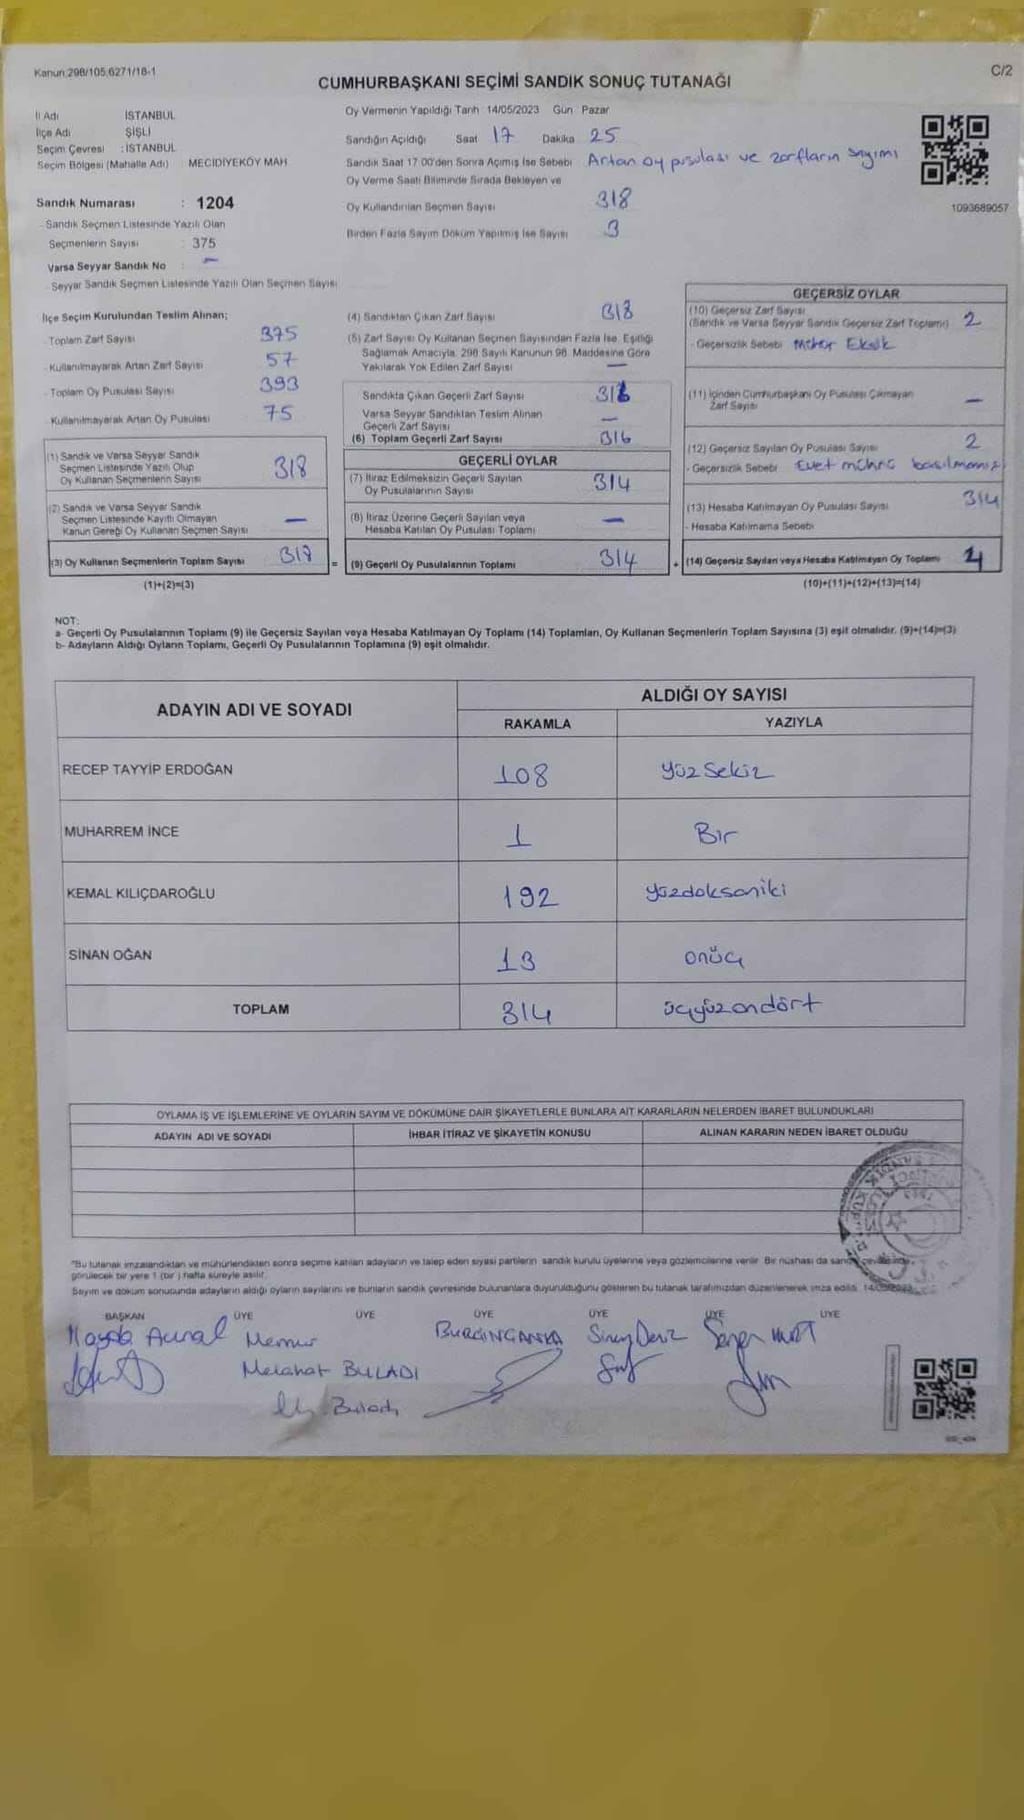 Kanun:298/105;6271/18-1
C/2
CUMHURBAŞKANI SEÇİMİ SANDIK SONUÇ TUTANAĞI
İl Adı İSTANBUL
İlçe Adı ŞİŞLİ
Seçim Çevresi : İSTANBUL
Seçim Bölgesi (Mahalle Adı) MECİDİYEKÖY MAH
Sandık Numarası : 1204
Sandık Seçmen Listesinde Yazılı Olan
Seçmenlerin Sayısı : 375
Varsa Seyyar Sandık No : —
Seyyar Sandık Seçmen Listesinde Yazılı Olan Seçmen Sayısı
Oy Vermenin Yapıldığı Tarih 14/05/2023 Gün Pazar
Sandığın Açıldığı Saat 17 Dakika 25
Sandık Saat 17.00'den Sonra Açımış İse Sebebi Artan oy pusulası ve zarfların sayımı
Oy Verme Saati Bitiminde Sırada Bekleyen ve
Oy Kullandırılan Seçmen Sayısı 318
Birden Fazla Sayım Döküm Yapılmış İse Sayısı 3
1093689057
İlçe Seçim Kurulundan Teslim Alınan;
Toplam Zarf Sayısı 375
Kullanılmayarak Artan Zarf Sayısı 57
Toplam Oy Pusulası Sayısı 393
Kullanılmayarak Artan Oy Pusulası 75
(1) Sandık ve Varsa Seyyar Sandık
Seçmen Listesinde Yazılı Olup
Oy Kullanan Seçmenlerin Sayısı 318
(2) Sandık ve Varsa Seyyar Sandık
Seçmen Listesinde Kayıtlı Olmayan
Kanun Gereği Oy Kullanan Seçmen Sayısı —
(3) Oy Kullanan Seçmenlerin Toplam Sayısı 318
(1)+(2)=(3)
(4) Sandıktan Çıkan Zarf Sayısı 318
(5) Zarf Sayısı Oy Kullanan Seçmen Sayısından Fazla İse, Eşitliği
Sağlamak Amacıyla, 298 Sayılı Kanunun 98. Maddesine Göre
Yakılarak Yok Edilen Zarf Sayısı —
Sandıkta Çıkan Geçerli Zarf Sayısı 316
Varsa Seyyar Sandıktan Teslim Alınan
Geçerli Zarf Sayısı —
(6) Toplam Geçerli Zarf Sayısı 316
GEÇERLİ OYLAR
(7) İtiraz Edilmeksizin Geçerli Sayılan
Oy Pusulalarının Sayısı 314
(8) İtiraz Üzerine Geçerli Sayılan veya
Hesaba Katılan Oy Pusulası Toplamı —
= (9) Geçerli Oy Pusulalarının Toplamı 314 +
GEÇERSİZ OYLAR
(10) Geçersiz Zarf Sayısı
(Sandık ve Varsa Seyyar Sandık Geçersiz Zarf Toplamı) 2
- Geçersizlik Sebebi Mühür Eksik
(11) İçinden Cumhurbaşkanı Oy Pusulası Çıkmayan
Zarf Sayısı —
(12) Geçersiz Sayılan Oy Pusulası Sayısı 2
- Geçersizlik Sebebi Evet mührü basılmamış
(13) Hesaba Katılmayan Oy Pusulası Sayısı 314
- Hesaba Katılmama Sebebi
(14) Geçersiz Sayılan veya Hesaba Katılmayan Oy Toplamı 4
(10)+(11)+(12)+(13)=(14)
NOT:
a- Geçerli Oy Pusulalarının Toplamı (9) ile Geçersiz Sayılan veya Hesaba Katılmayan Oy Toplamı (14) Toplamları, Oy Kullanan Seçmenlerin Toplam Sayısına (3) eşit olmalıdır. (9)+(14)=(3)
b- Adayların Aldığı Oyların Toplamı, Geçerli Oy Pusulalarının Toplamına (9) eşit olmalıdır.
ADAYIN ADI VE SOYADI ALDIĞI OY SAYISI
RAKAMLA YAZIYLA
RECEP TAYYİP ERDOĞAN 108 Yüz Sekiz
MUHARREM İNCE 1 Bir
KEMAL KILIÇDAROĞLU 192 yüzdoksaniki
SİNAN OĞAN 13 onüç
TOPLAM 314 üçyüzondört
OYLAMA İŞ VE İŞLEMLERİNE VE OYLARIN SAYIM VE DÖKÜMÜNE DAİR ŞİKAYETLERLE BUNLARA AİT KARARLARIN NELERDEN İBARET BULUNDUKLARI
ADAYIN ADI VE SOYADI İHBAR İTİRAZ VE ŞİKAYETİN KONUSU ALINAN KARARIN NEDEN İBARET OLDUĞU
"Bu tutanak imzalandıktan ve mühürlendikten sonra seçime katılan adayların ve talep eden siyasi partilerin sandık kurulu üyelerine veya gözlemcilerine verilir. Bir nüshası da sandık çevresinde
görülecek bir yere 1 (bir ) hafta süreyle asılır.
Sayım ve döküm sonucunda adayların aldığı oyların sayılarını ve bunların sandık çevresinde bulunanlara duyurulduğunu gösteren bu tutanak tarafımızdan düzenlenerek imza edildi. 14/05/2023
BAŞKAN ÜYE ÜYE ÜYE ÜYE ÜYE ÜYE
Aunal Memur Siray Deniz
Melahat BULADI
Buladı